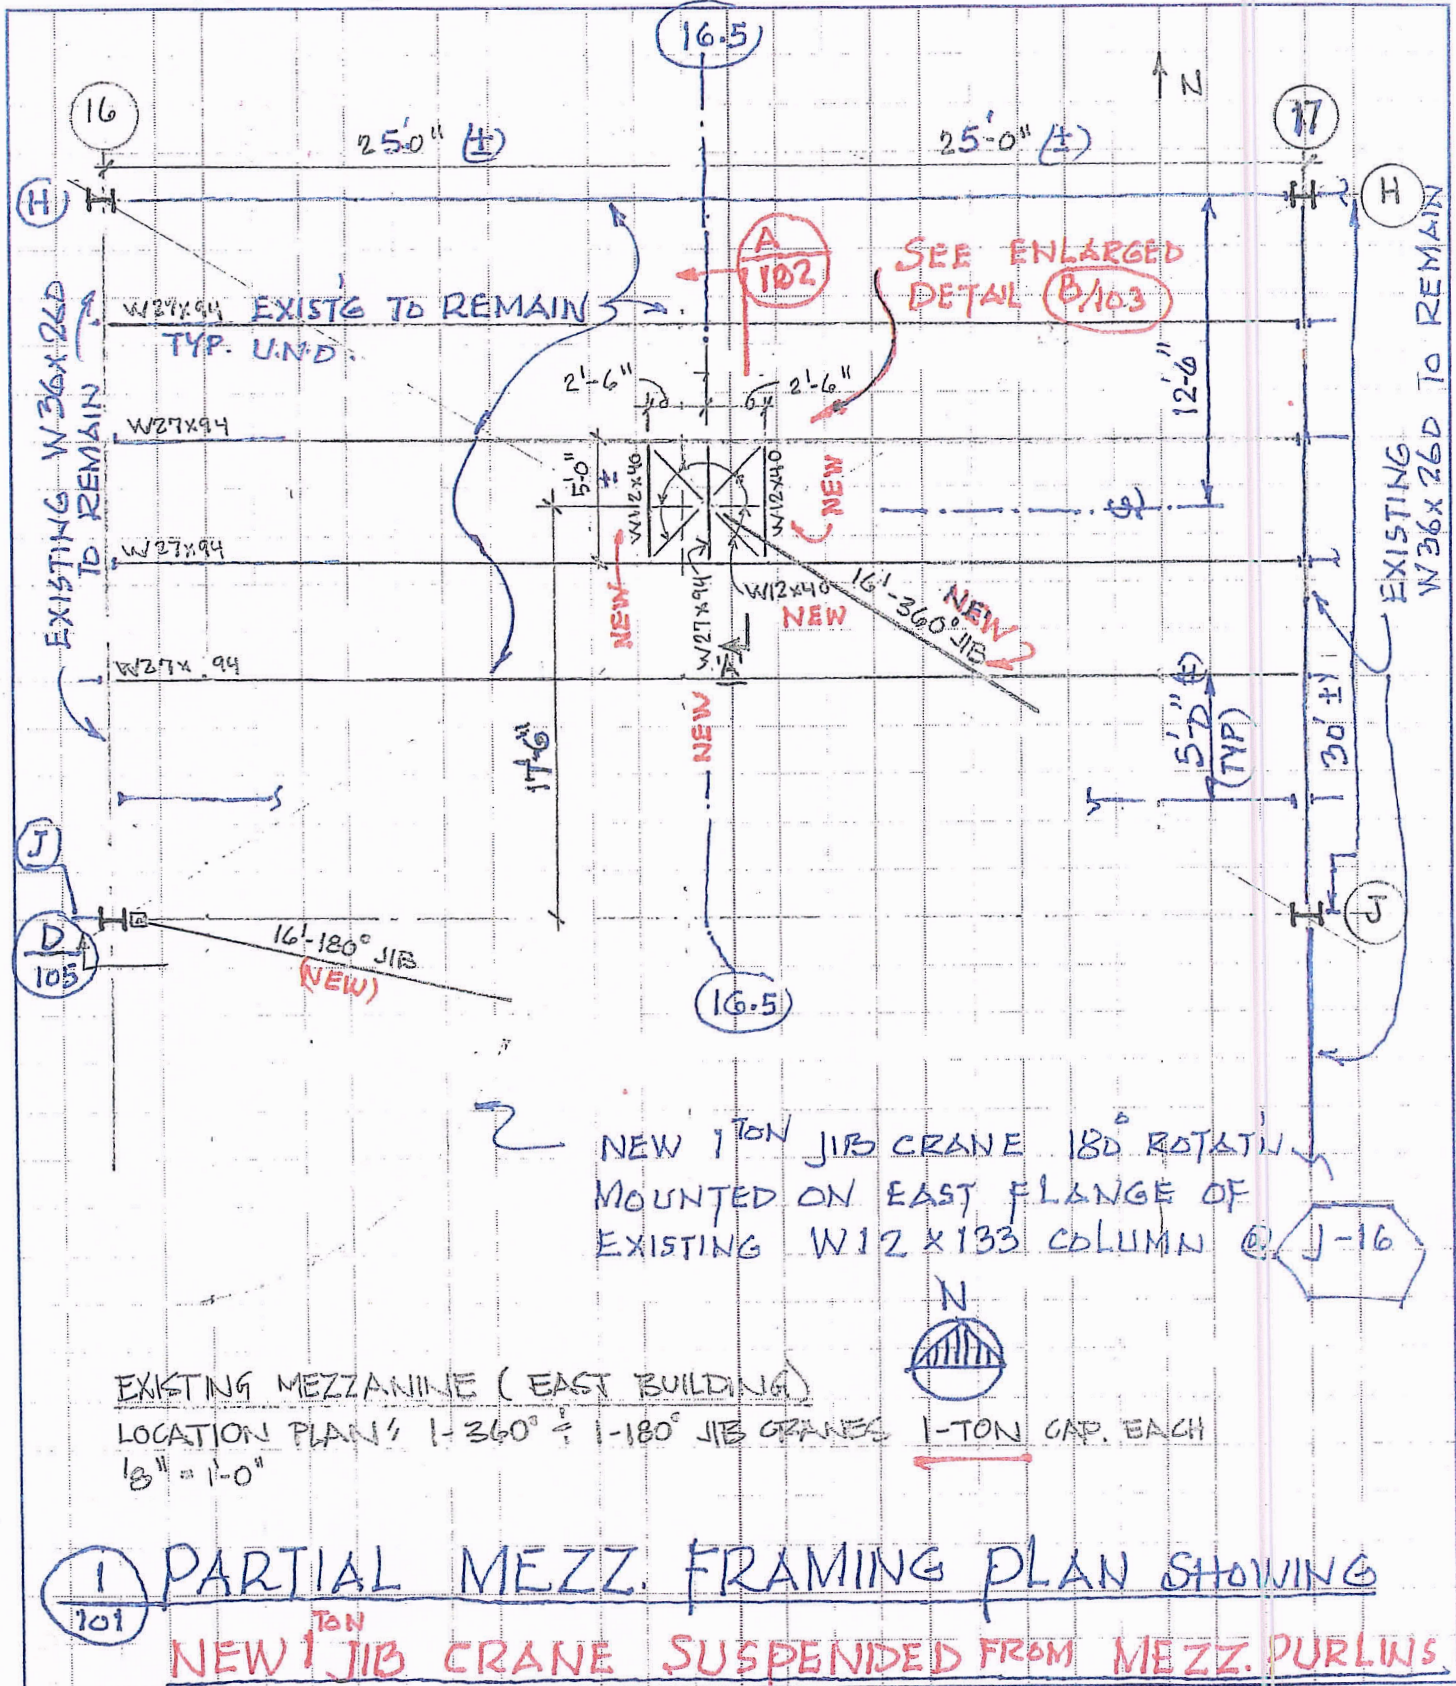 16.5
N
16
25'-0" (±)
25'-0" (±)
17
H
H
A
102
SEE ENLARGED
DETAIL B/103
W27x94 EXIST'G TO REMAIN
TYP. U.N.O.
EXISTING W36x260
TO REMAIN
2'-6"
2'-6"
12'-6"
W27x94
5'-0"
±
W12x40
W12x40
NEW
EXISTING
W36x260 TO REMAIN
W27x94
NEW
W27x94
W12x40
NEW
16'-360° JIB
NEW
W27x94
A
NEW
17'-6"
5'-0" (±)
(TYP)
30' ±
J
J
D
105
16'-180° JIB
(NEW)
16.5
NEW 1 TON JIB CRANE 180° ROTAT'N
MOUNTED ON EAST FLANGE OF
EXISTING W12 x 133 COLUMN @ J-16
N
EXISTING MEZZANINE (EAST BUILDING)
LOCATION PLAN: 1-360° & 1-180° JIB CRANES 1-TON CAP. EACH
1/8" = 1'-0"
1
101
PARTIAL MEZZ. FRAMING PLAN SHOWING
NEW 1 TON JIB CRANE SUSPENDED FROM MEZZ. PURLINS.